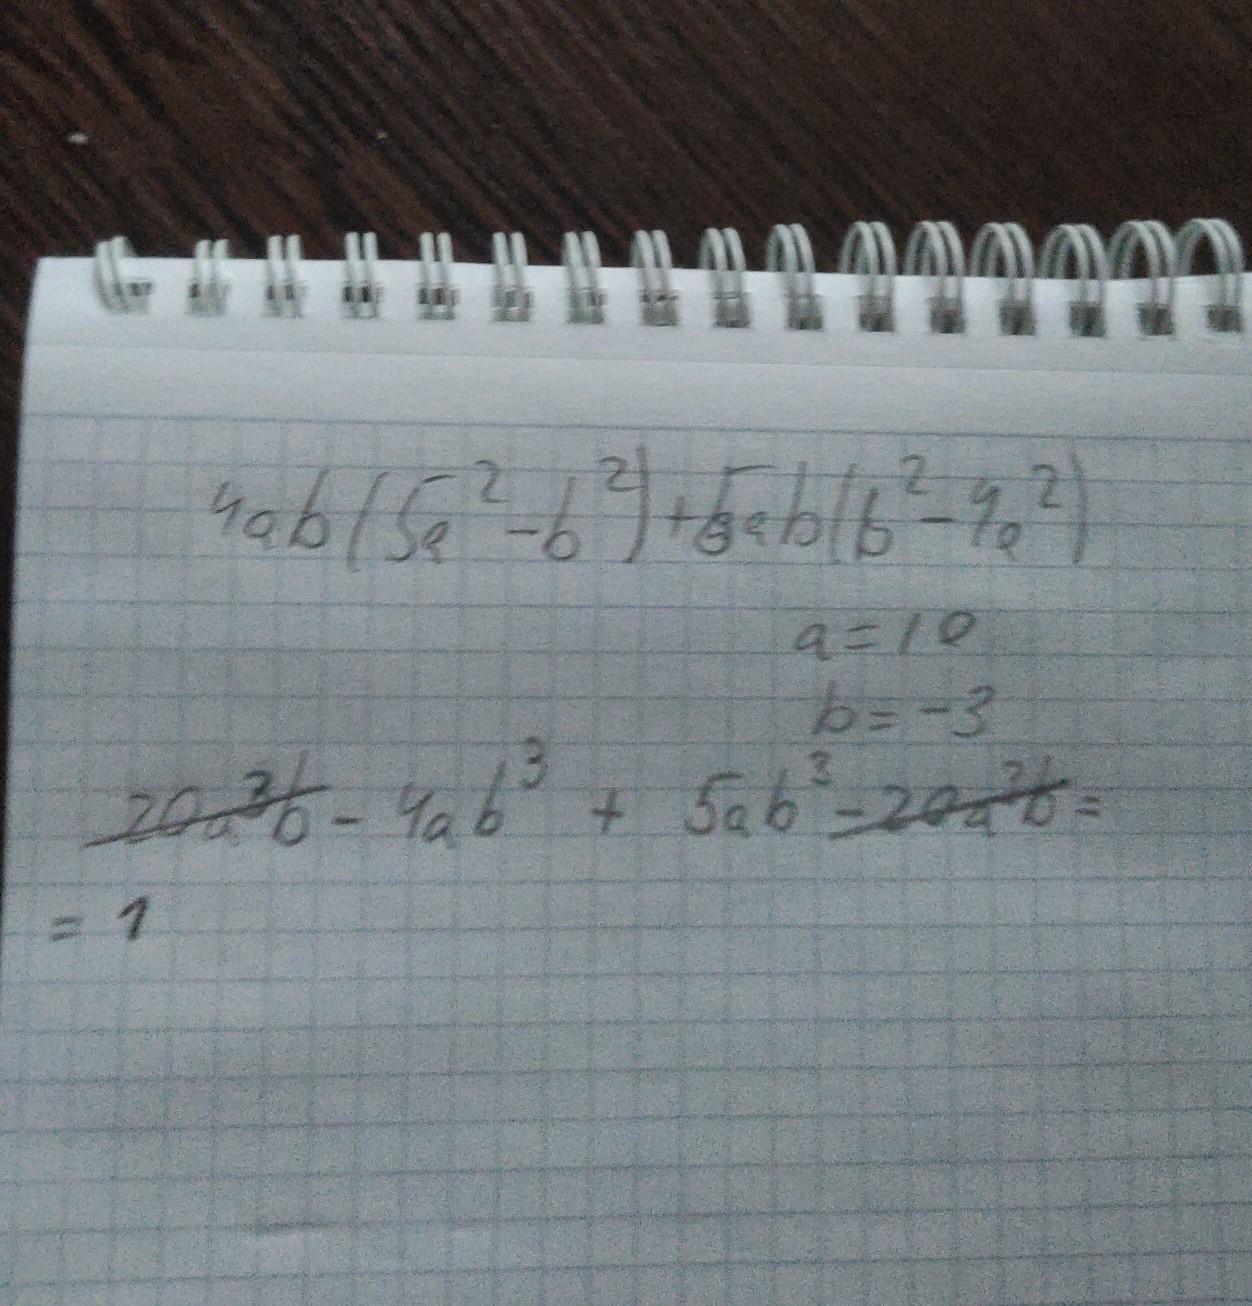 4ab(5a²-b²)+5ab(b²-4a²)
a=10
b=-3
20a³b-4ab³ + 5ab³-20a³b=
=1